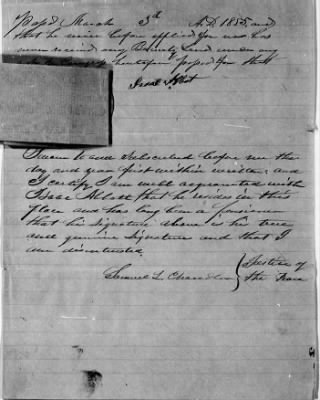 Passed March 3d A.D. 1855 and
that he never before applied for nor has
ever received any Bounty Land under any
act of Congress heretofore passed
Isaac
Sworn to and Subscribed before me the
day and year first within written, and
I certify I am well acquainted with
Isaac that he resides in this
place and has long been a
that his signature above is his true
and genuine signature and that I
am disinterested.
Samuel L. Chandler } Justice of
the Peace